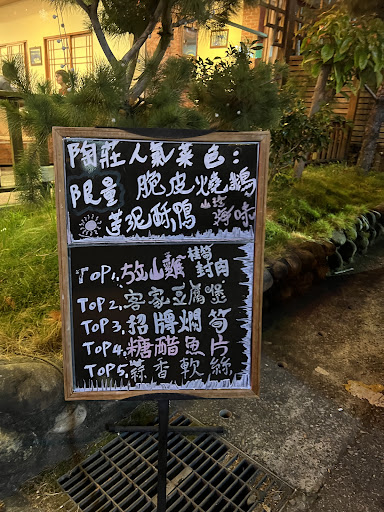 陶莊人氣菜色：
限量 脆皮燒鵝
芋泥酥鴨 山珍海味
TOP1. 放山雞 桂筍封肉
TOP2. 客家豆腐煲
TOP3. 招牌燜筍
TOP4. 糖醋魚片
TOP5. 蒜香軟絲